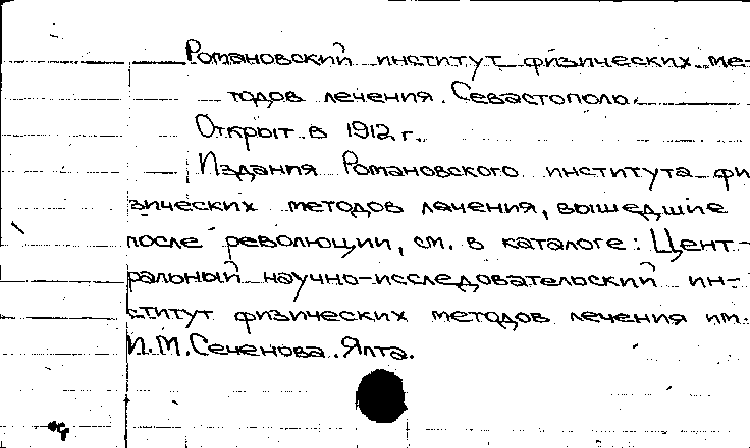 Романовский институт физических ме-
тодов лечения. Севастополь.
Открыт в 1912 г.
Издания Романовского института фи
зических методов лечения, вышедшие
после революции, см. в каталоге: Цент-
ральный научно-исследовательский ин-
ститут физических методов лечения им.
И.М.Сеченова. Ялта.